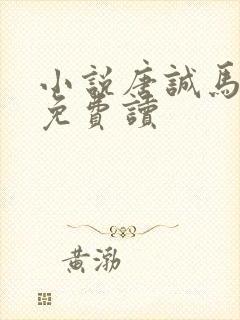 小說唐誠馬
免費讀
黃渤